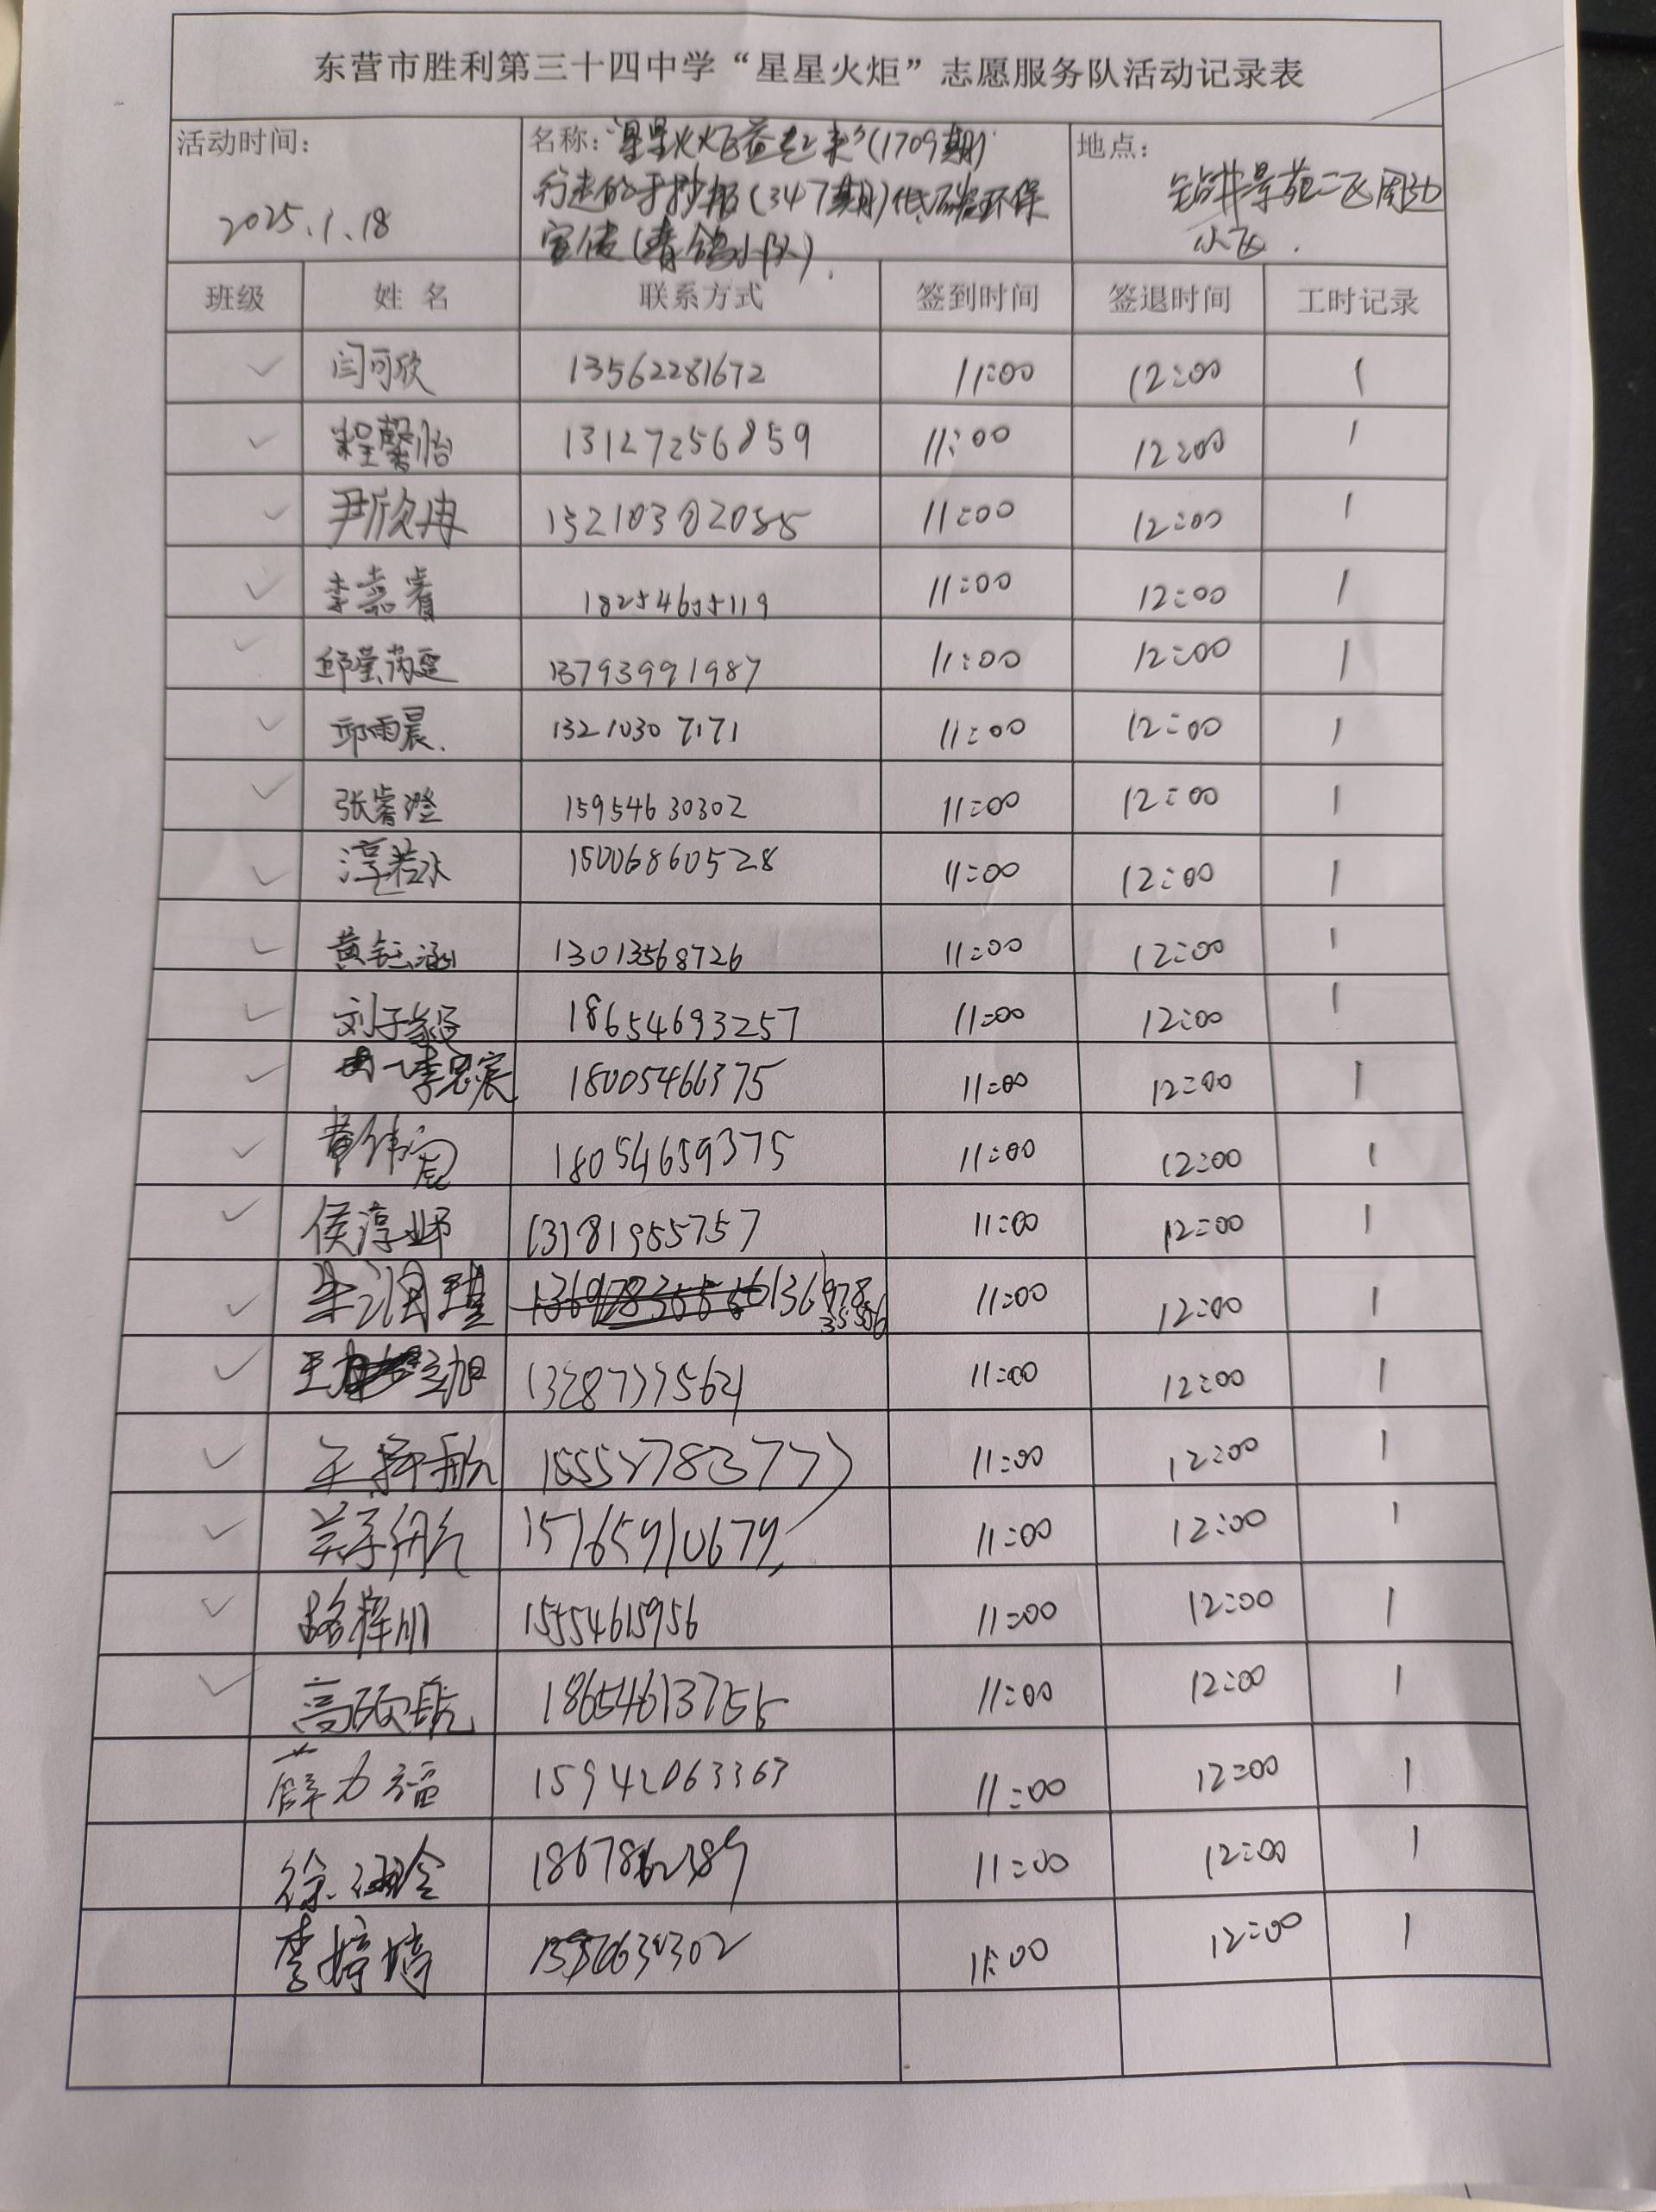 东营市胜利第三十四中学“星星火炬”志愿服务队活动记录表
活动时间： 2025.1.18
名称：“星星火炬益起来”(1709期)
行走的手抄报(347期)低碳环保
宣传(青鸽小队).
地点： 钻井景苑二区周边
小区.
班级 姓名 联系方式 签到时间 签退时间 工时记录
✓ 闫可欣 13562281672 11:00 12:00 1
✓ 程馨怡 13127256859 11:00 12:00 1
✓ 尹欣冉 15210302085 11:00 12:00 1
✓ 李嘉睿 18254655119 11:00 12:00 1
✓ 13793991987 11:00 12:00 1
✓ 邱雨晨. 13210307171 11:00 12:00 1
✓ 张睿澄 15954630302 11:00 12:00 1
✓ 淳若冰 15006860528 11:00 12:00 1
✓ 黄钰涵 13013568726 11:00 12:00 1
✓ 刘子毅 18654693257 11:00 12:00 1
✓ 李思宸 18005466375 11:00 12:00 1
✓ 18054659375 11:00 12:00 1
✓ 侯淳 13181955757 11:00 12:00 1
✓ 朱润瑾 13697835556 11:00 12:00 1
✓ 王 11:00 12:00 1
✓ 11:00 12:00 1
✓ 15765910679 11:00 12:00 1
✓ 路梓川 15554615956 11:00 12:00 1
✓ 高 18654613755 11:00 12:00 1
薛力福 15942063363 11:00 12:00 1
徐涵 11:00 12:00 1
李婷婷 11:00 12:00 1